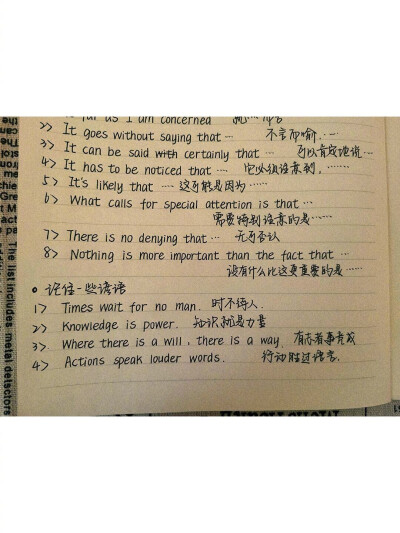 as I am concerned
2> It goes without saying that … 不言而喻. …
3> It can be said with certainly that … 可以肯定地说 …
4> It has to be noticed that … 它必须注意到, ……
5> It's likely that …. 这可能是因为 ……
6> What calls for special attention is that …
需要特别注意的是 ……
7> There is no denying that … 无可否认
8> Nothing is more important than the fact that …
没有什么比这更重要的是 ……
• 记住一些谚语
1> Times wait for no man. 时不待人.
2> Knowledge is power. 知识就是力量
3> Where there is a will, there is a way. 有志者事竟成
4> Actions speak louder words. 行动胜过语言.
The list includes metal detectors